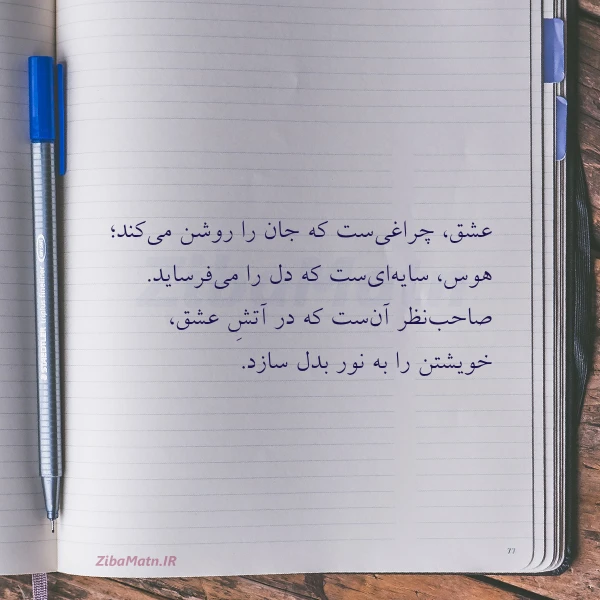 عشق، چراغی‌ست که جان را روشن می‌کند؛
هوس، سایه‌ای‌ست که دل را می‌فرساید.
صاحب‌نظر آن‌ست که در آتشِ عشق،
خویشتن را به نور بدل سازد.
ZibaMatn.IR